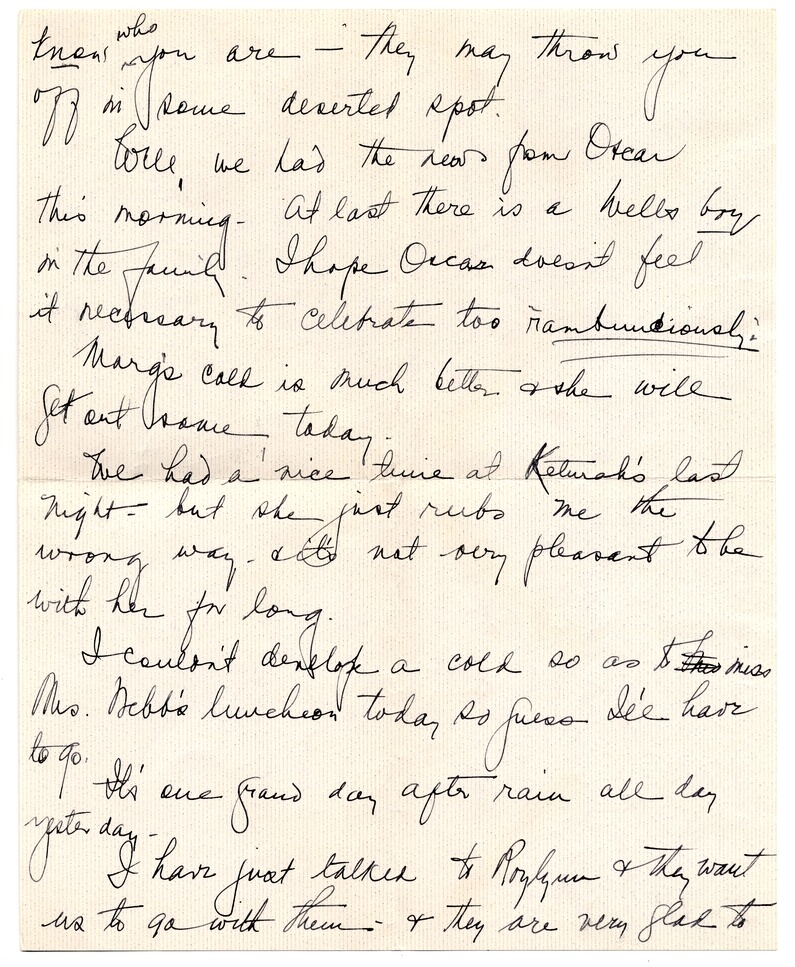 know who you are – they may throw you
off in some deserted spot.
Well, we had the news from Oscar
this morning – At last there is a Wells boy
in the family. I hope Oscar doesn't feel
it necessary to celebrate too rambunciously.
Marg's cold is much better & she will
get out some today.
We had a nice time at Keturah's last
night – but she just rubs me the
wrong way – & it's not very pleasant to be
with her for long.
I couldn't develope a cold so as to miss
Mrs. Webb's luncheon today so guess I'll have
to go.
It's one grand day after rain all day
yesterday –
I have just talked to Roylynn & they want
us to go with them – & they are very glad to